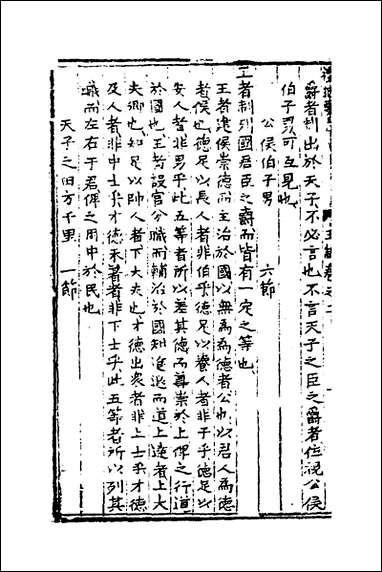 爵者制出於天子不必言也不言天子之臣之爵者位視公侯
伯子男可互見也
公侯伯子男　六節
王者制列國君臣之爵而皆有一定之等也
王者建侯崇德而主治於國以無為為德者公也以君人為德
者侯也德足以長人者非伯乎德足以養人者非子乎德足以
安人者非男乎此五等者所以差其德而尊崇於上俾之行道
於國也王者設官分職而輔治於國知進退而道上達者上大
夫卿也知足以帥人者下大夫也才德出衆者非上士乎才德
及人者非中士乎才德未著者非下士乎此五等者所以列其
職而左右于君俾之用中於民也
天子之田方千里　一節